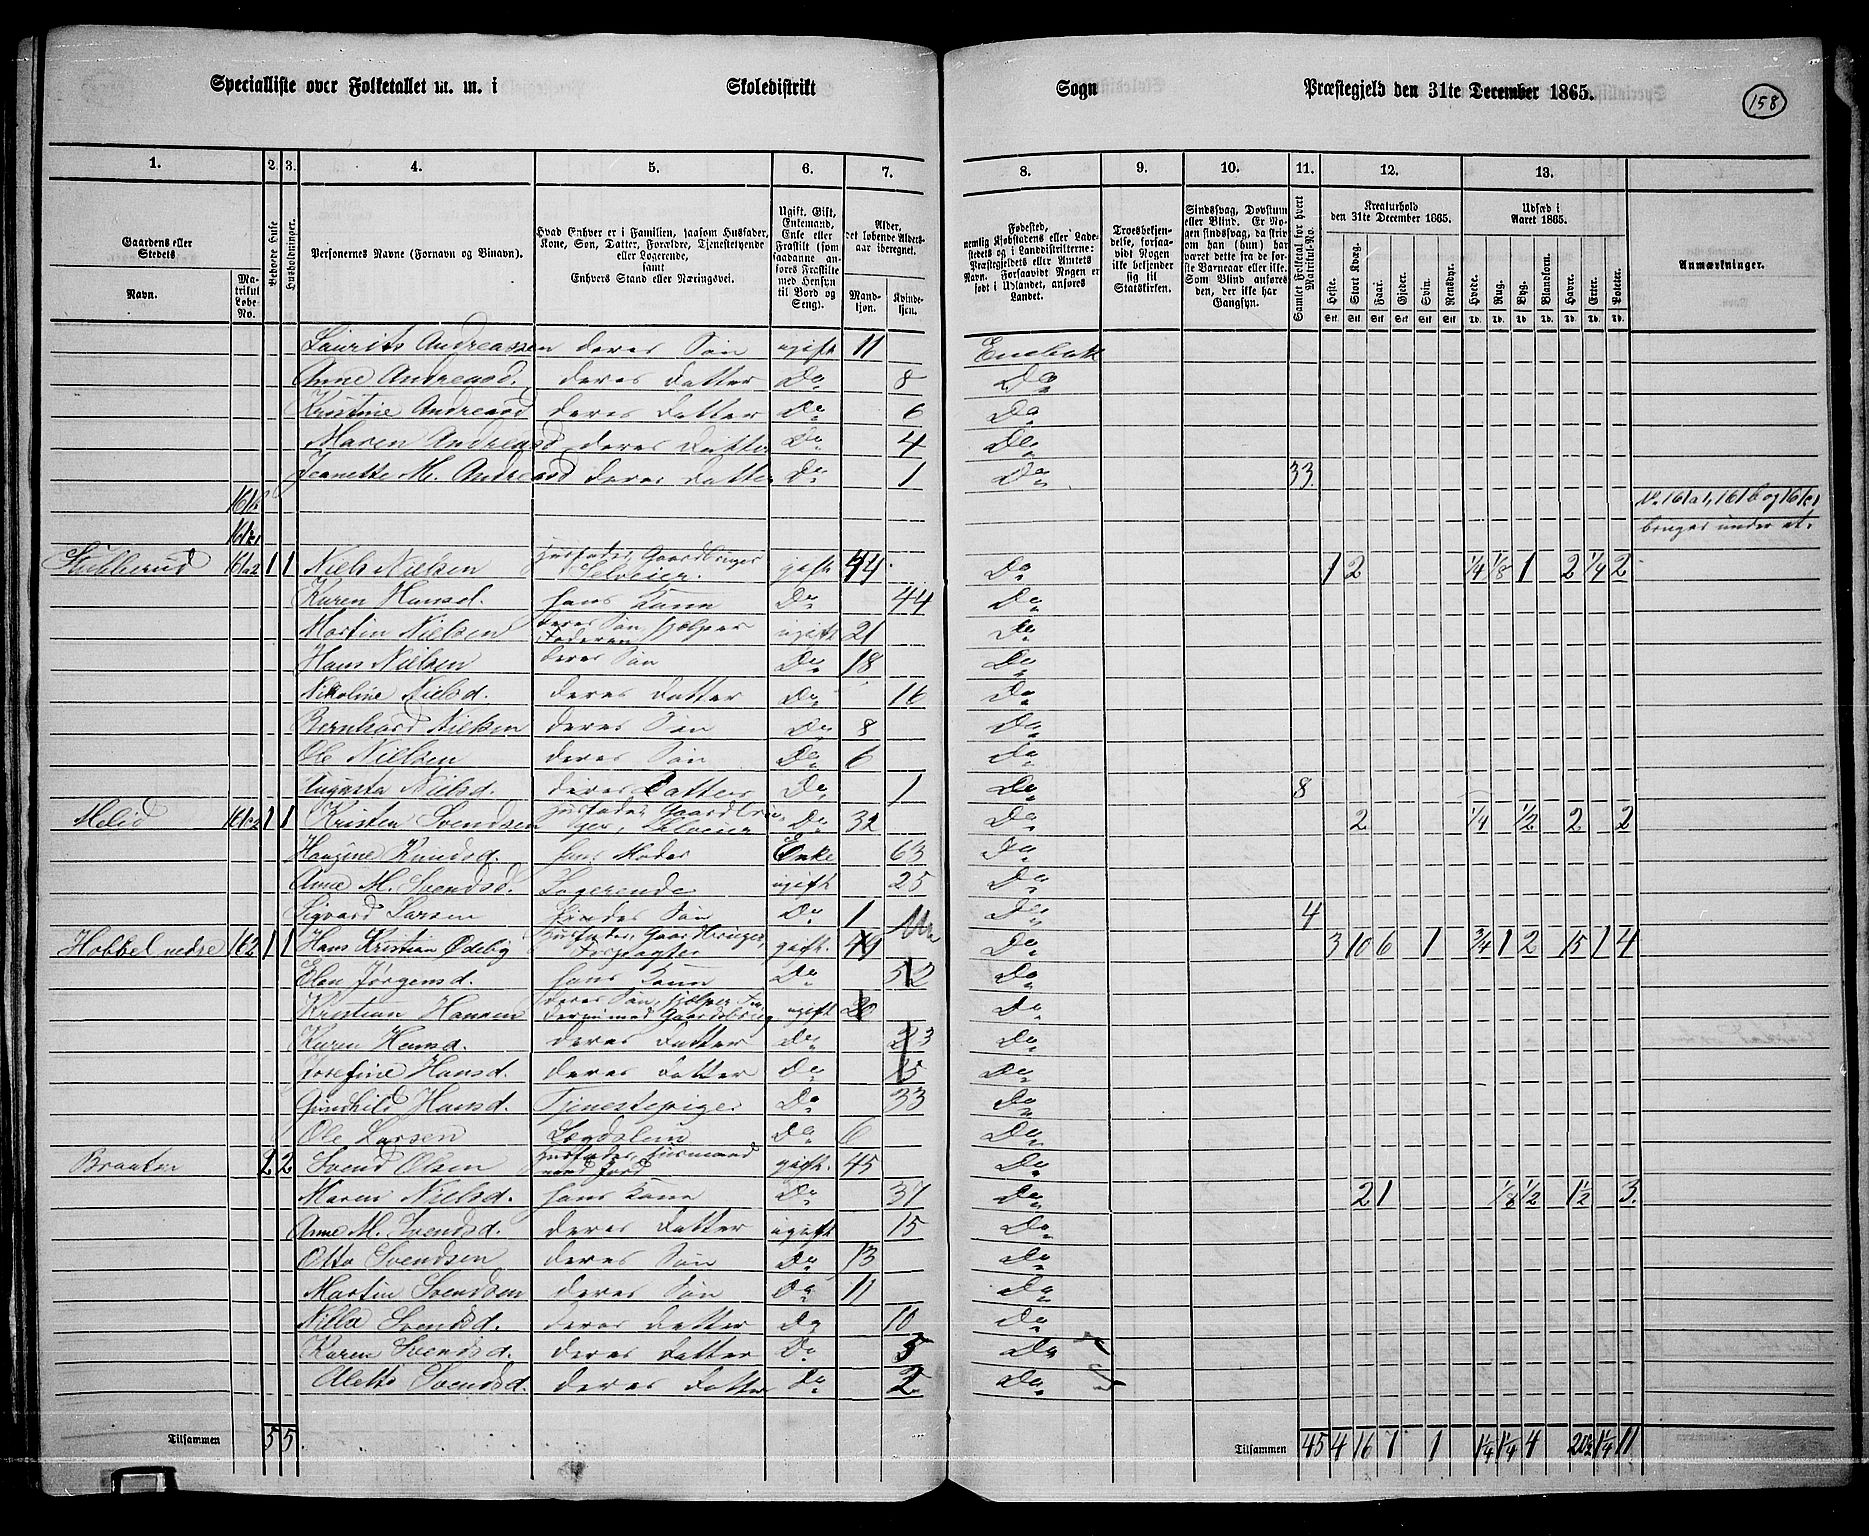 Specialliste over Folketallet m. m. i Skoledistrikt Sogn Præstegjeld den 31te December 1865. 158
1. 2. 3. 4. 5. 6. 7. 8. 9. 10. 11. 12. 13.
Gaardens eller Stedets Navn. Matrikul Løbe-No.
Beboede Huse
Husholdninger.
Personernes Navne (Fornavn og Tilnavn).
Hvad Enhver er i Familien, saasom Husfader, Kone, Søn, Datter, Forældre, Tjenestetyende eller Logerende, samt Enhvers Stand eller Næringsvei.
Ugift, Gift, Enkemand, Enke eller Fraskilt (som saadanne anføres Fraskilte med Hensyn til Bord og Seng).
Alder, det løbende Aldersaar iberegnet. Mandkjøn. Kvindekjøn.
Fødested, nemlig Kjøbstadens eller Ladestedets og i Landdistrikterne: Præstegjeldets eller Amtets Navn. Forsaavidt Nogen er født i Udlandet, anføres Landet.
Troesbekjendelse, forsaavidt Nogen ikke bekjender sig til Statskirken.
Sindssvag, Døvstum eller Blind. Er Nogen sindssvag, da skrives om han (hun) har været dette fra de første Barneaar eller ikke. Som Blind anføres den, der ikke har Gangsyn.
Samlet Folketal for hvert Matrikul-No.
Kreaturhold den 31te December 1865. Heste. Stort Kvæg. Faar. Gjeder. Svin. Rensdyr.
Udsæd i Aaret 1865. Hvede. Rug. Byg. Blandkorn. Havre. Erter. Poteter.
Anmærkninger.
Laurits Andreassen deres Søn ugift 11 Enebak
Anne Andreasd. deres Datter Do 8 Do
Kristine Andreasd deres Datter Do 6 Do
Maren Andreasd deres Datter Do 4 Do
Jeanette M. Andreasd deres Datter Do 1 Do 33
161b No 161a1, 161b og 161c1
161c1 bruges under et.
Stubberud 161a2 1 1 Niels Nielsen Husfader, Gaardbruger Selveier gift 44 Do 1 2 1/4 1/8 1 2 1/4 2
Karen Hansd. hans Kone Do 44 Do
Martin Nielsen deres Søn, hjelper Faderen ugift 21 Do
Hans Nielsen deres Søn Do 18 Do
Nikoline Nielsd. deres Datter Do 16 Do
Bernhard Nielsen deres Søn Do 8 Do
Ole Nielsen deres Søn Do 6 Do
Augusta Nielsd. deres Datter Do 1 Do 8
161c2 1 1 Kristen Svendsen Husfader, Gaardbruger, Selveier Do 32 Do 2 1/4 1/2 2 2
Knudsd. hans Moder Enke 63 Do
Anne M. Svendsd. Logerende ugift 25 Do
Sigvard Larsen hendes Søn Do 1 Do 4
Hobbel nedre 162 1 1 Hans Kristian Odebig Husfader, Gaardbruger, Forpagter gift. Do 3 10 6 1 3/4 1 2 15 1 4
Elen Jørgensd. hans Kone Do 52 Do
Kristian Hansen deres Søn, hjelper Faderen med Gaardsbrug ugift 20 Do
Karen Hansd. deres Datter Do 23 Do
Josefine Hansd. deres Datter Do 15 Do
Gunhild Hansd. Tjenestepige Do 33 Do
Ole Larsen Lægdslem Do 6 Do
Braaten 2 2 Svend Olsen Husfader, Husmand med Jord gift. 45 Do
Maren Nielsd. hans Kone Do 37 Do 2 1 1/8 1/2 1 1/2 3.
Anne M. Svendsd. deres Datter ugift 15 Do
Otto Svendsen deres Søn Do 13 Do
Martin Svendsen deres Søn Do 11 Do
Svendsd. deres Datter Do 10 Do
Karen Svendsd. deres Datter Do 5 Do
Olette Svendsd. deres Datter Do 2 Do
Tilsammen 5 5. Tilsammen 45 4 16 7 1 1 1/4 1 1/4 4 20 1/2 1 1/4 11